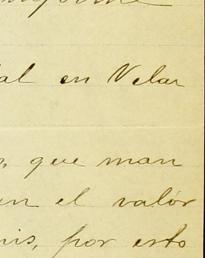 al en Velar
que man
en el valór
por esto